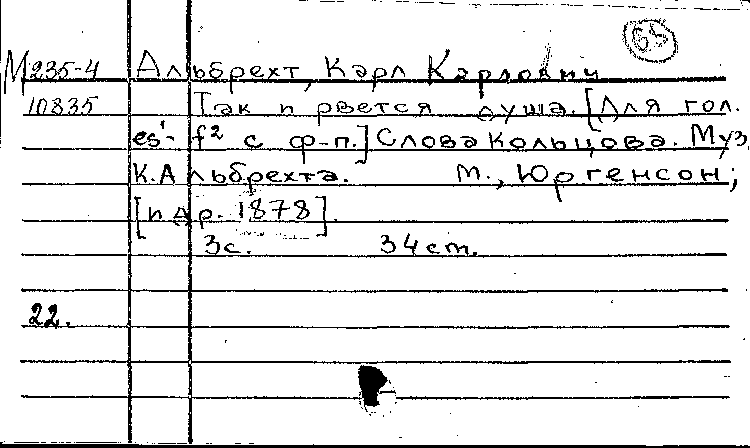 65
М 235-4 Альбрехт, Карл Карлович
10835 Так и рвется душа. [Для гол.
es¹- f² с ф-п.] Слова Кольцова. Муз.
К. Альбрехта. М., Юргенсон;
[п др. 1878].
3с. 34 cm.
22.